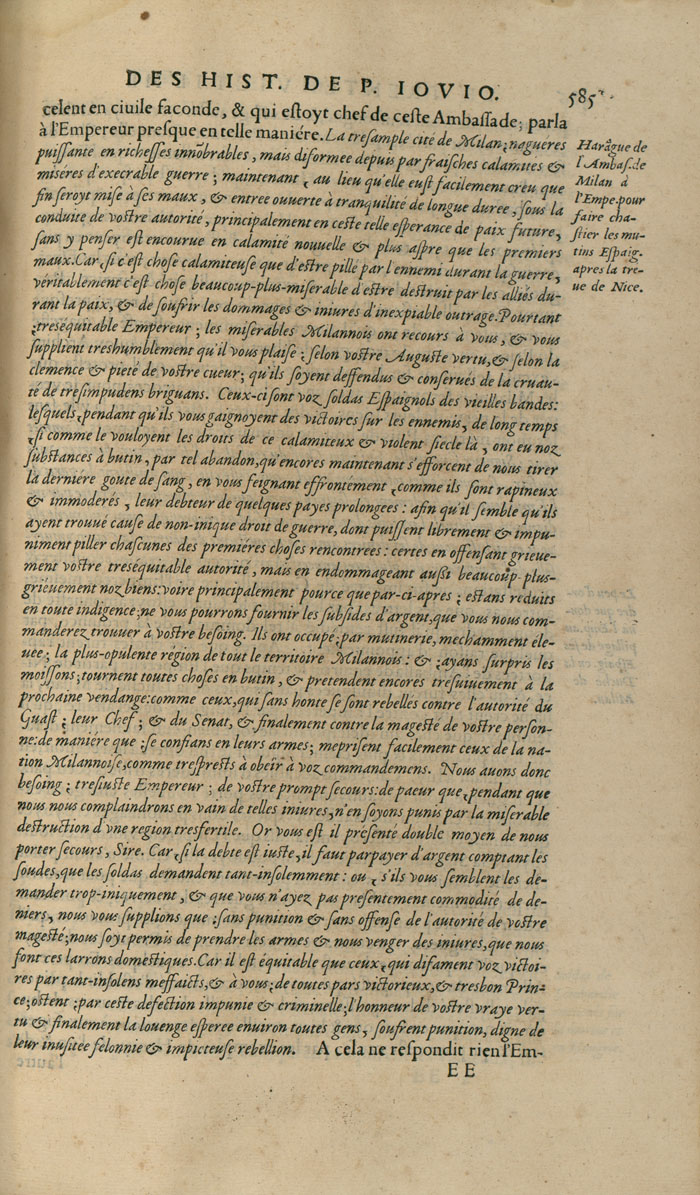 DES HIST. DE P. IOVIO.
585
celent en ciuile faconde, & qui estoyt chef de ceste Ambassade; parla
à l'Empereur presque en telle maniére. La tresample cité de Milan; nagueres
puissante en richesses innõbrables, mais diformee depuis par fraisches calamites &
miséres d'execrable guerre; maintenant, au lieu qu'elle eust facilement creu que
fin seroyt mise à ses maux, & entree ouuerte à tranquilité de longue duree, sous la
conduite de vostre autorité, principalement en ceste telle esperance de paix future,
sans y penser est encourue en calamité nouuelle & plus aspre que les premiers
maux. Car, si c'est chose calamiteuse que d'estre pillé par l'ennemi durant la guerre,
véritablement c'est chose beaucoup-plus-miserable d'estre destruit par les alliés du-
rant la paix, & de soufrir les dommages & iniures d'inexpiable outrage. Pourtant
;treséquitable Empereur; les misérables Milannois ont recours à vous, & vous
supplient treshumblement qu'il vous plaise; selon vostre Auguste vertu, & selon la
clemence & pieté de vostre cueur; qu'ils soyent deffendus & conserués de la cruau-
té de tresimpudens briguans. Ceux-ci sont voz soldas Espaignols des vieilles bandes:
lesquels, pendant qu'ils vous gaignoyent des victoires sur les ennemis, de long temps
,si comme le vouloyent les droits de ce calamiteux & violent siecle là, ont eu noz
substances à butin, par tel abandon, qu'encores maintenant s'efforcent de nous tirer
la derniére goute de sang, en vous feignant effrontement, comme ils sont rapineux
& immoderés, leur debteur de quelques payes prolongees: afin qu'il semble qu'ils
ayent trouué cause de non-inique droit de guerre, dont puissent librement & impu-
niment piller chascunes des premiéres choses rencontrees: certes en offensant grieue-
ment vostre treséquitable autorité, mais en endommageant aussi beaucoûp-plus-
griéuement noz biens: voire principalement pource que par-ci-apres; estans reduits
en toute indigence; ne vous pourrons fournir les subsides d'argent, que vous nous com-
manderez trouuer à vostre besoing. Ils ont occupé; par mutinerie, mechamment éle-
uee; la plus-opulente région de tout le territoire Milannois: & ;ayans surpris les
moissons; tournent toutes choses en butin, & pretendent encores tresuiuement à la
prochaine vendange: comme ceux, qui sans honte se sont rebelles contre l'autorité du
Guast; leur Chef; & du Senat, & finalement contre la magesté de vostre person-
ne: de maniére que ;se confians en leurs armes; meprisent facilement ceux de la na-
tion Milannoise, comme tresprests à obeïr à voz commandemens. Nous auons donc
besoing; tresiuste Empereur; de vostre prompt secours: de paeur que, pendant que
nous nous complaindrons en vain de telles iniures, n'en soyons punis par la miserable
destruction d'vne region tresfertile. Or vous est il présenté double moyen de nous
porter secours, Sire. Car, si la debte est iuste, il faut parpayer d'argent comptant les
soudes, que les soldas demandent tant-insolemment: ou, s'ils vous semblent les de-
mander trop-iniquement, & que vous n'ayez pas presentement commodité de de-
niers, nous vous supplions que ;sans punition & sans offense de l'autorité de vostre
magesté; nous soyt permis de prendre les armes & nous venger des iniures, que nous
font ces larrons domestiques. Car il est équitable que ceux, qui difament voz victoi-
res par tant-insolens meffaicts, & à vous; de toutes pars victorieux, & tresbon Prin-
ce; ostent ;par ceste defection impunie & criminelle; l'honneur de vostre vraye ver-
tu & finalement la louenge esperee enuiron toutes gens, soufrent punition, digne de
leur inusitee felonnie & impicteuse rebellion. A cela ne respondit rien l'Em-
EE
Harãgue de
l'Ambas. de
Milan à
l'Empe. pour
faire cha-
stier les mu-
tins Espaig.
apres la tre-
ue de Nice.